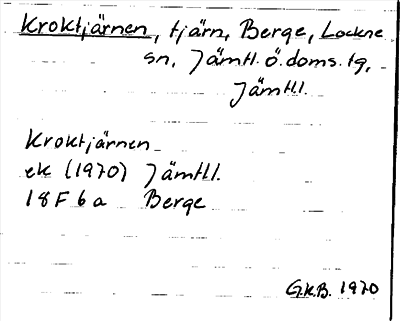 Kroktjärnen, tjärn, Berge, Lockne
sn, Jämtl. ö. doms. tg,
Jämtl.
Kroktjärnen
ek (1970) Jämtl.
18F 6a Berge
G.K.B. 1970